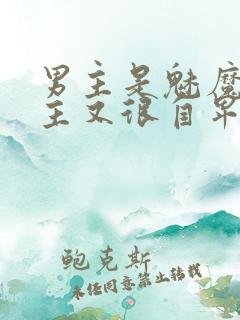 男主是魅魔
主又很自卑
鲍克斯
未经同意禁止转载